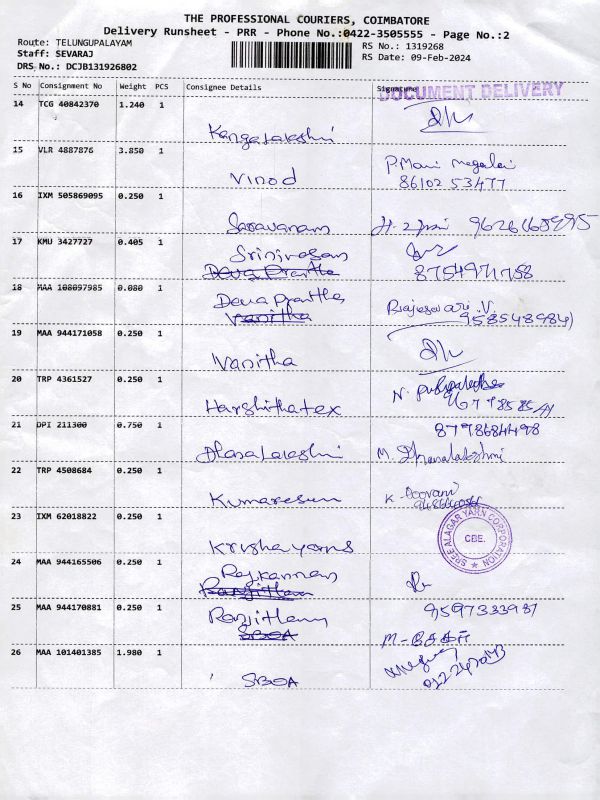 THE PROFESSIONAL COURIERS, COIMBATORE
Delivery Runsheet - PRR - Phone No.:0422-3505555 - Page No.:2
Route: TELUNGUPALAYAM
Staff: SEVARAJ
DRS No.: DCJB131926802
RS No.: 1319268
RS Date: 09-Feb-2024
S No Consignment No Weight PCS Consignee Details Signature
DOCUMENT DELIVERY
14 TCG 40842370 1.240 1
Kangalakshmi
15 VLR 4887876 3.850 1
Vinod P. Mani Megalai
86102 53477
16 IXM 505869095 0.250 1
Saravanam
17 KMU 3427727 0.405 1
Srinivasan
Deva Prartha 8754971758
18 MAA 108097985 0.080 1
Deva Prartha Rajeswari.V.
Vanitha
19 MAA 944171058 0.250 1
Vanitha
20 TRP 4361527 0.250 1
Harshithatex
21 DPI 211300 0.750 1 8798684498
M. Dhanalakshmi
22 TRP 4508684 0.250 1
Kumaresun K. Poovani
23 IXM 62018822 0.250 1
Krishayarns
SREE ALAGAR YARN CORPORATION
CBE.
24 MAA 944165506 0.250 1
Rajkannan
Ranjitham
25 MAA 944170881 0.250 1 9597333987
Ranjitham
SBOA
26 MAA 101401385 1.980 1
SBOA